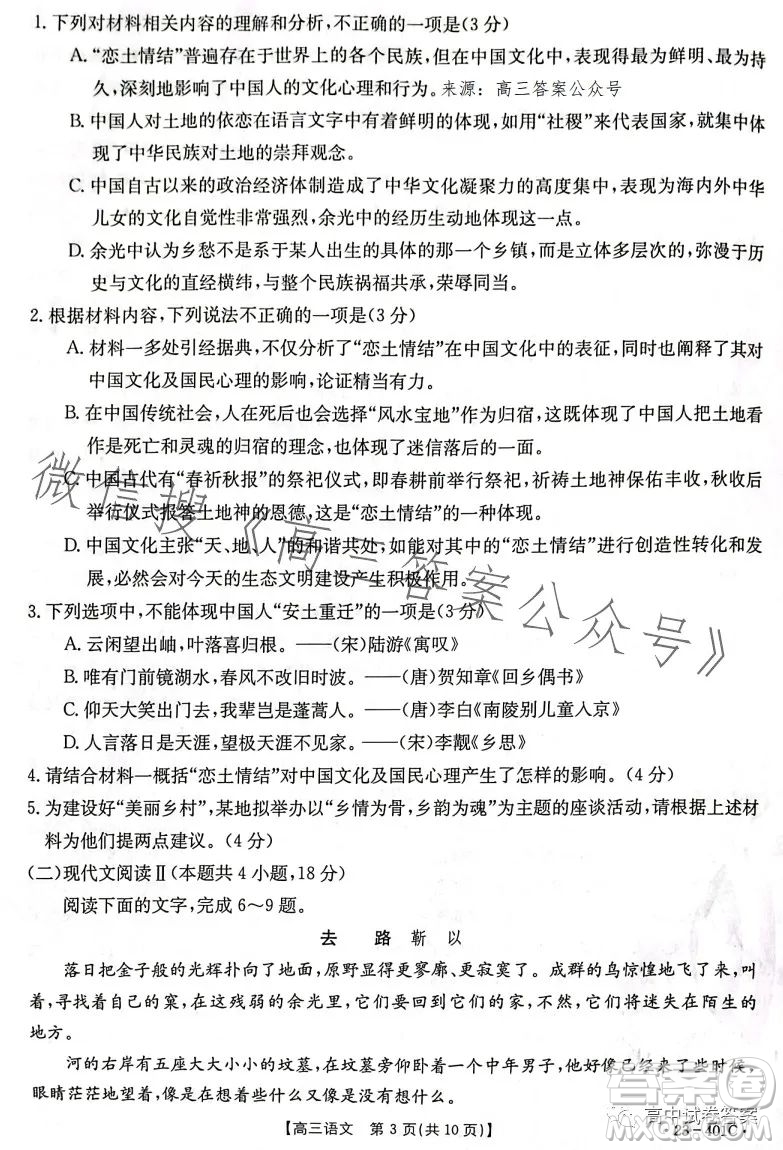 1. 下列对材料相关内容的理解和分析,不正确的一项是(3分)
A. “恋土情结”普遍存在于世界上的各个民族,但在中国文化中,表现得最为鲜明、最为持
久,深刻地影响了中国人的文化心理和行为。来源：高三答案公众号
B. 中国人对土地的依恋在语言文字中有着鲜明的体现,如用“社稷”来代表国家,集中体现
了中华民族对土地的崇拜观念。
C. 中国自古以来的政治经济体制造成了中华文化凝聚力的高度集中,表现为海内外中华
儿女的文化自觉性非常强烈,余光中的经历生动地体现这一点。
D. 余光中与乡愁不是系于某人出生或生活的那一个乡镇,而是系于整个民族,弥漫于历
史与文化的直经横纬,与整个民族祸福共当,荣辱同当。
2. 根据材料内容,下列说法不正确的一项是(3分)
A. 材料一多处引经据典,不仅分析了“恋土情结”在中国文化中的表征,同时分析了其对
中国文化及国民心理的影响,论证精当有力。
B. 在中国传统社会,人在死后会选择“风水宝地”作为归宿,体现了中国人把土地看
作是死亡和灵魂的归宿的理念,也体现了迷信落后的一面。
C. 中国古代有“春祈秋报”的祭祀仪式,即春耕前举行祭祀,祈祷土地神保佑丰收,秋收后
举行仪式报答土地神的恩德,这是“恋土情结”的一种体现。
D. 中国文化主张“天、地、人”的和谐共处,如能对其中的“恋土情结”进行创造性转化与发
展,必然会对今天的生态文明建设产生积极作用。
3. 下列选项中,不能体现中国人“安土重迁”的一项是(3分)
A. 云闲望出岫,叶落喜归根。——(宋)陆游《寓叹》
B. 唯有门前镜湖水,春风不改旧时波。——(唐)贺知章《回乡偶书》
C. 仰天大笑出门去,我辈岂是蓬蒿人。——(唐)李白《南陵别儿童入京》
D. 人言落日是天涯,望极天涯不见家。——(宋)李觏《乡思》
4. 请结合材料一概括“恋土情结”对中国文化及国民心理产生了怎样的影响。(4分)
5. 为建设好“美丽乡村”,某地拟举办以“乡情为骨,乡韵为魂”为主题的座谈活动,请根据上述材
料为他们提两点建议。(4分)
(二)现代文阅读Ⅱ(本题共4小题,18分)
阅读下面的文字,完成6～9题。
去 路 靳 以
落日把金子般的光辉扑向了地面,原野显得更寥廓、更寂寞了。成群的鸟惊惶地飞了来,叫
着,寻找着自己的窠,在这残弱的余光里,它们该回到它们的家,不然,它们将迷失在陌生的
地方。
河的右岸有五座大大小小的坟墓,在坟墓旁仰卧着一个中年男子,他好像已经来了些时候,
眼睛茫茫地望着,像是在想些什么又像是没有想些什么。
【高三语文 第3页(共10页)】
·23-401C·
微信搜《高三答案公众号》
答案圈
高中试卷答案